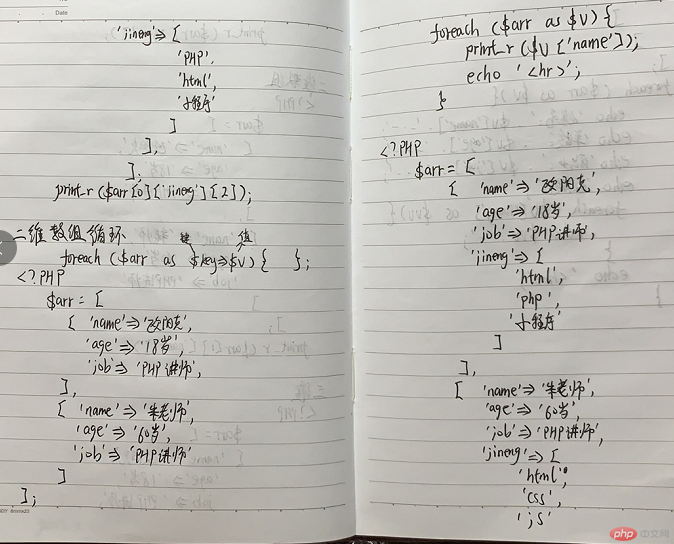 Date
'jineng'=>[
'PHP',
'html',
'小程序'
]
],
];
print_r ($arr[0]['jineng'][2]);
二维数组循环
键 值
foreach ($arr as $key=>$v) { };
<?PHP
$arr = [
[ 'name'=>'欧阳克',
'age'=>'18岁',
'job'=>'PHP讲师',
],
[ 'name'=>'朱老师',
'age'=>'60岁',
'job'=>'PHP讲师'
]
];
foreach ($arr as $v) {
print_r ($v['name']);
echo '<hr>';
}
<?PHP
$arr = [
[ 'name'=>'欧阳克',
'age'=>'18岁',
'job'=>'PHP讲师',
'jineng'=>[
'html',
'php',
'小程序'
]
],
[ 'name'=>'朱老师',
'age'=>'60岁',
'job'=>'PHP讲师',
'jineng'=>[
'html',
'css',
'js'
php 中文网